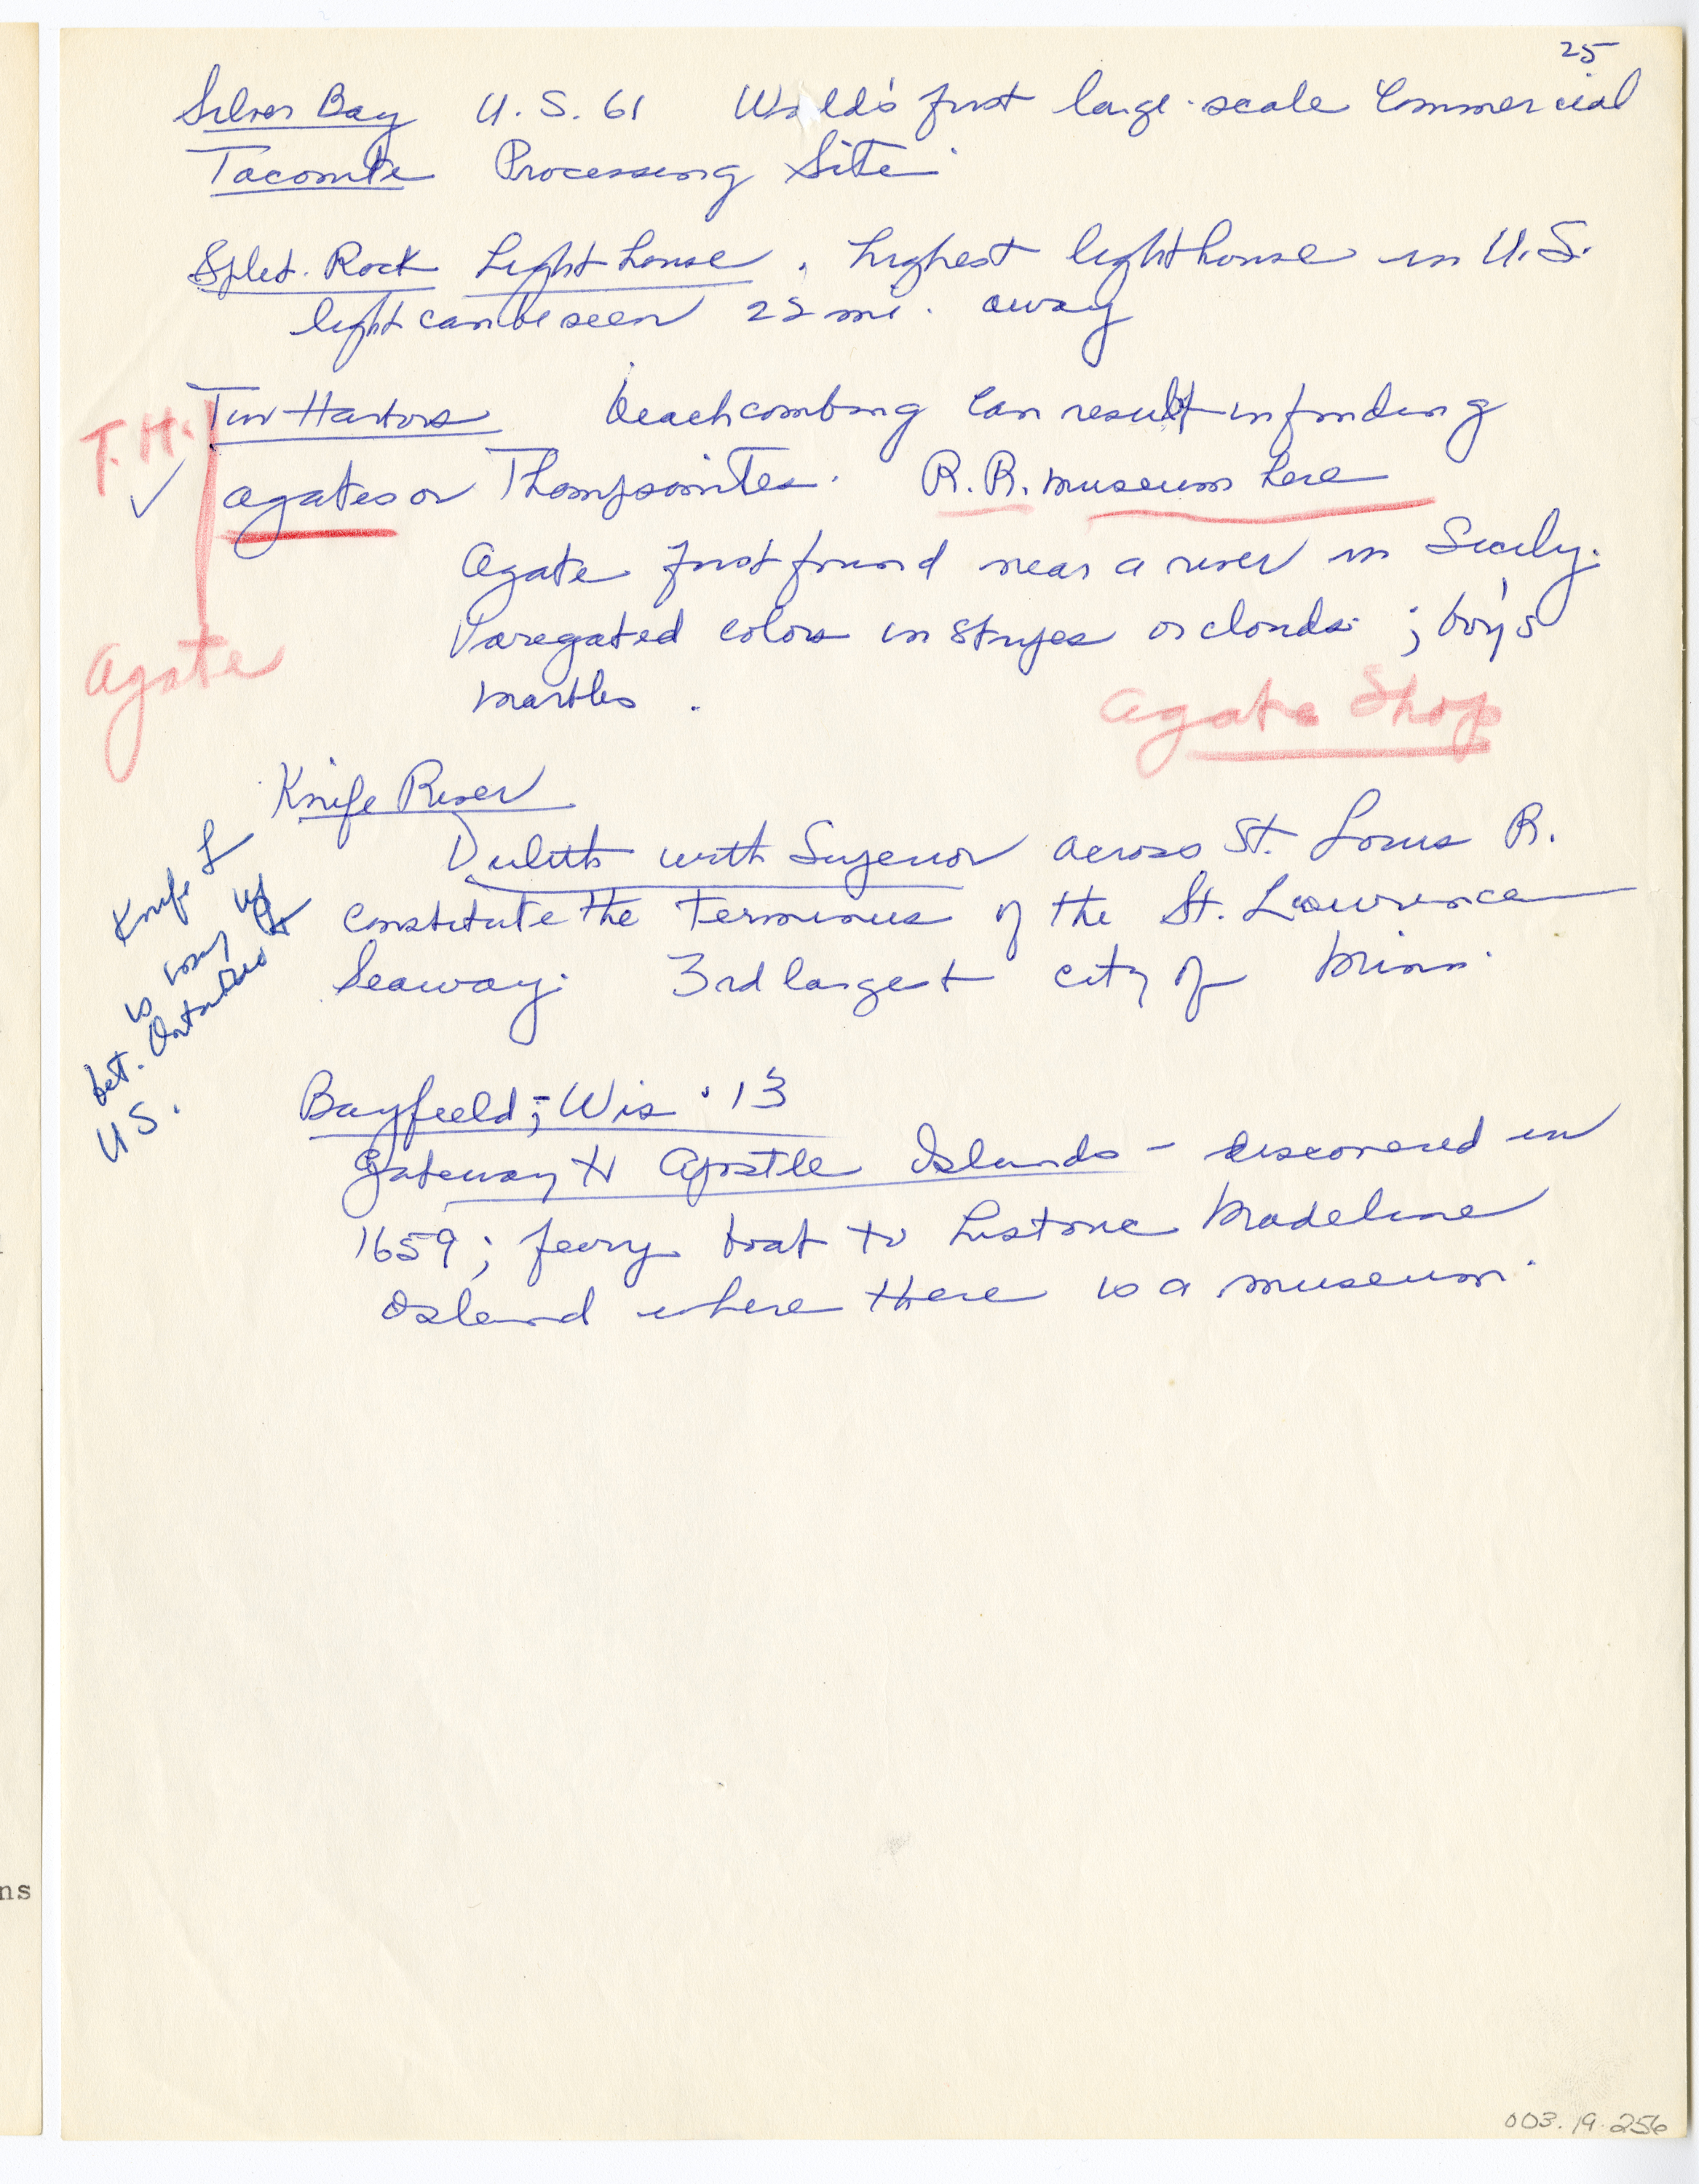 25
Silver Bay U.S. 61 World's first large-scale Commercial
Taconite Processing Site
Split Rock Lighthouse, highest lighthouse in U.S.
light can be seen 22 mi. away
T.H.
Two Harbors beachcombing can result in finding
✓ agates or Thompsonites. R.R. museum here
Agate first found near a river in Sicily.
Agate
Varegated colors in stripes or clouds; boy's
marbles.
Agate Shop
Knife River
Duluth with Superior across St. Louis R.
constitute the terminus of the St. Lawrence
Seaway. 3rd largest city of Minn.
Knife L
is way up
bet. Ontario &
U.S.
Bayfield; Wis. 13
Gateway to Apostle Islands - discovered in
1659; ferry boat to historic Madeline
Island where there is a museum.
ns
003.19.256